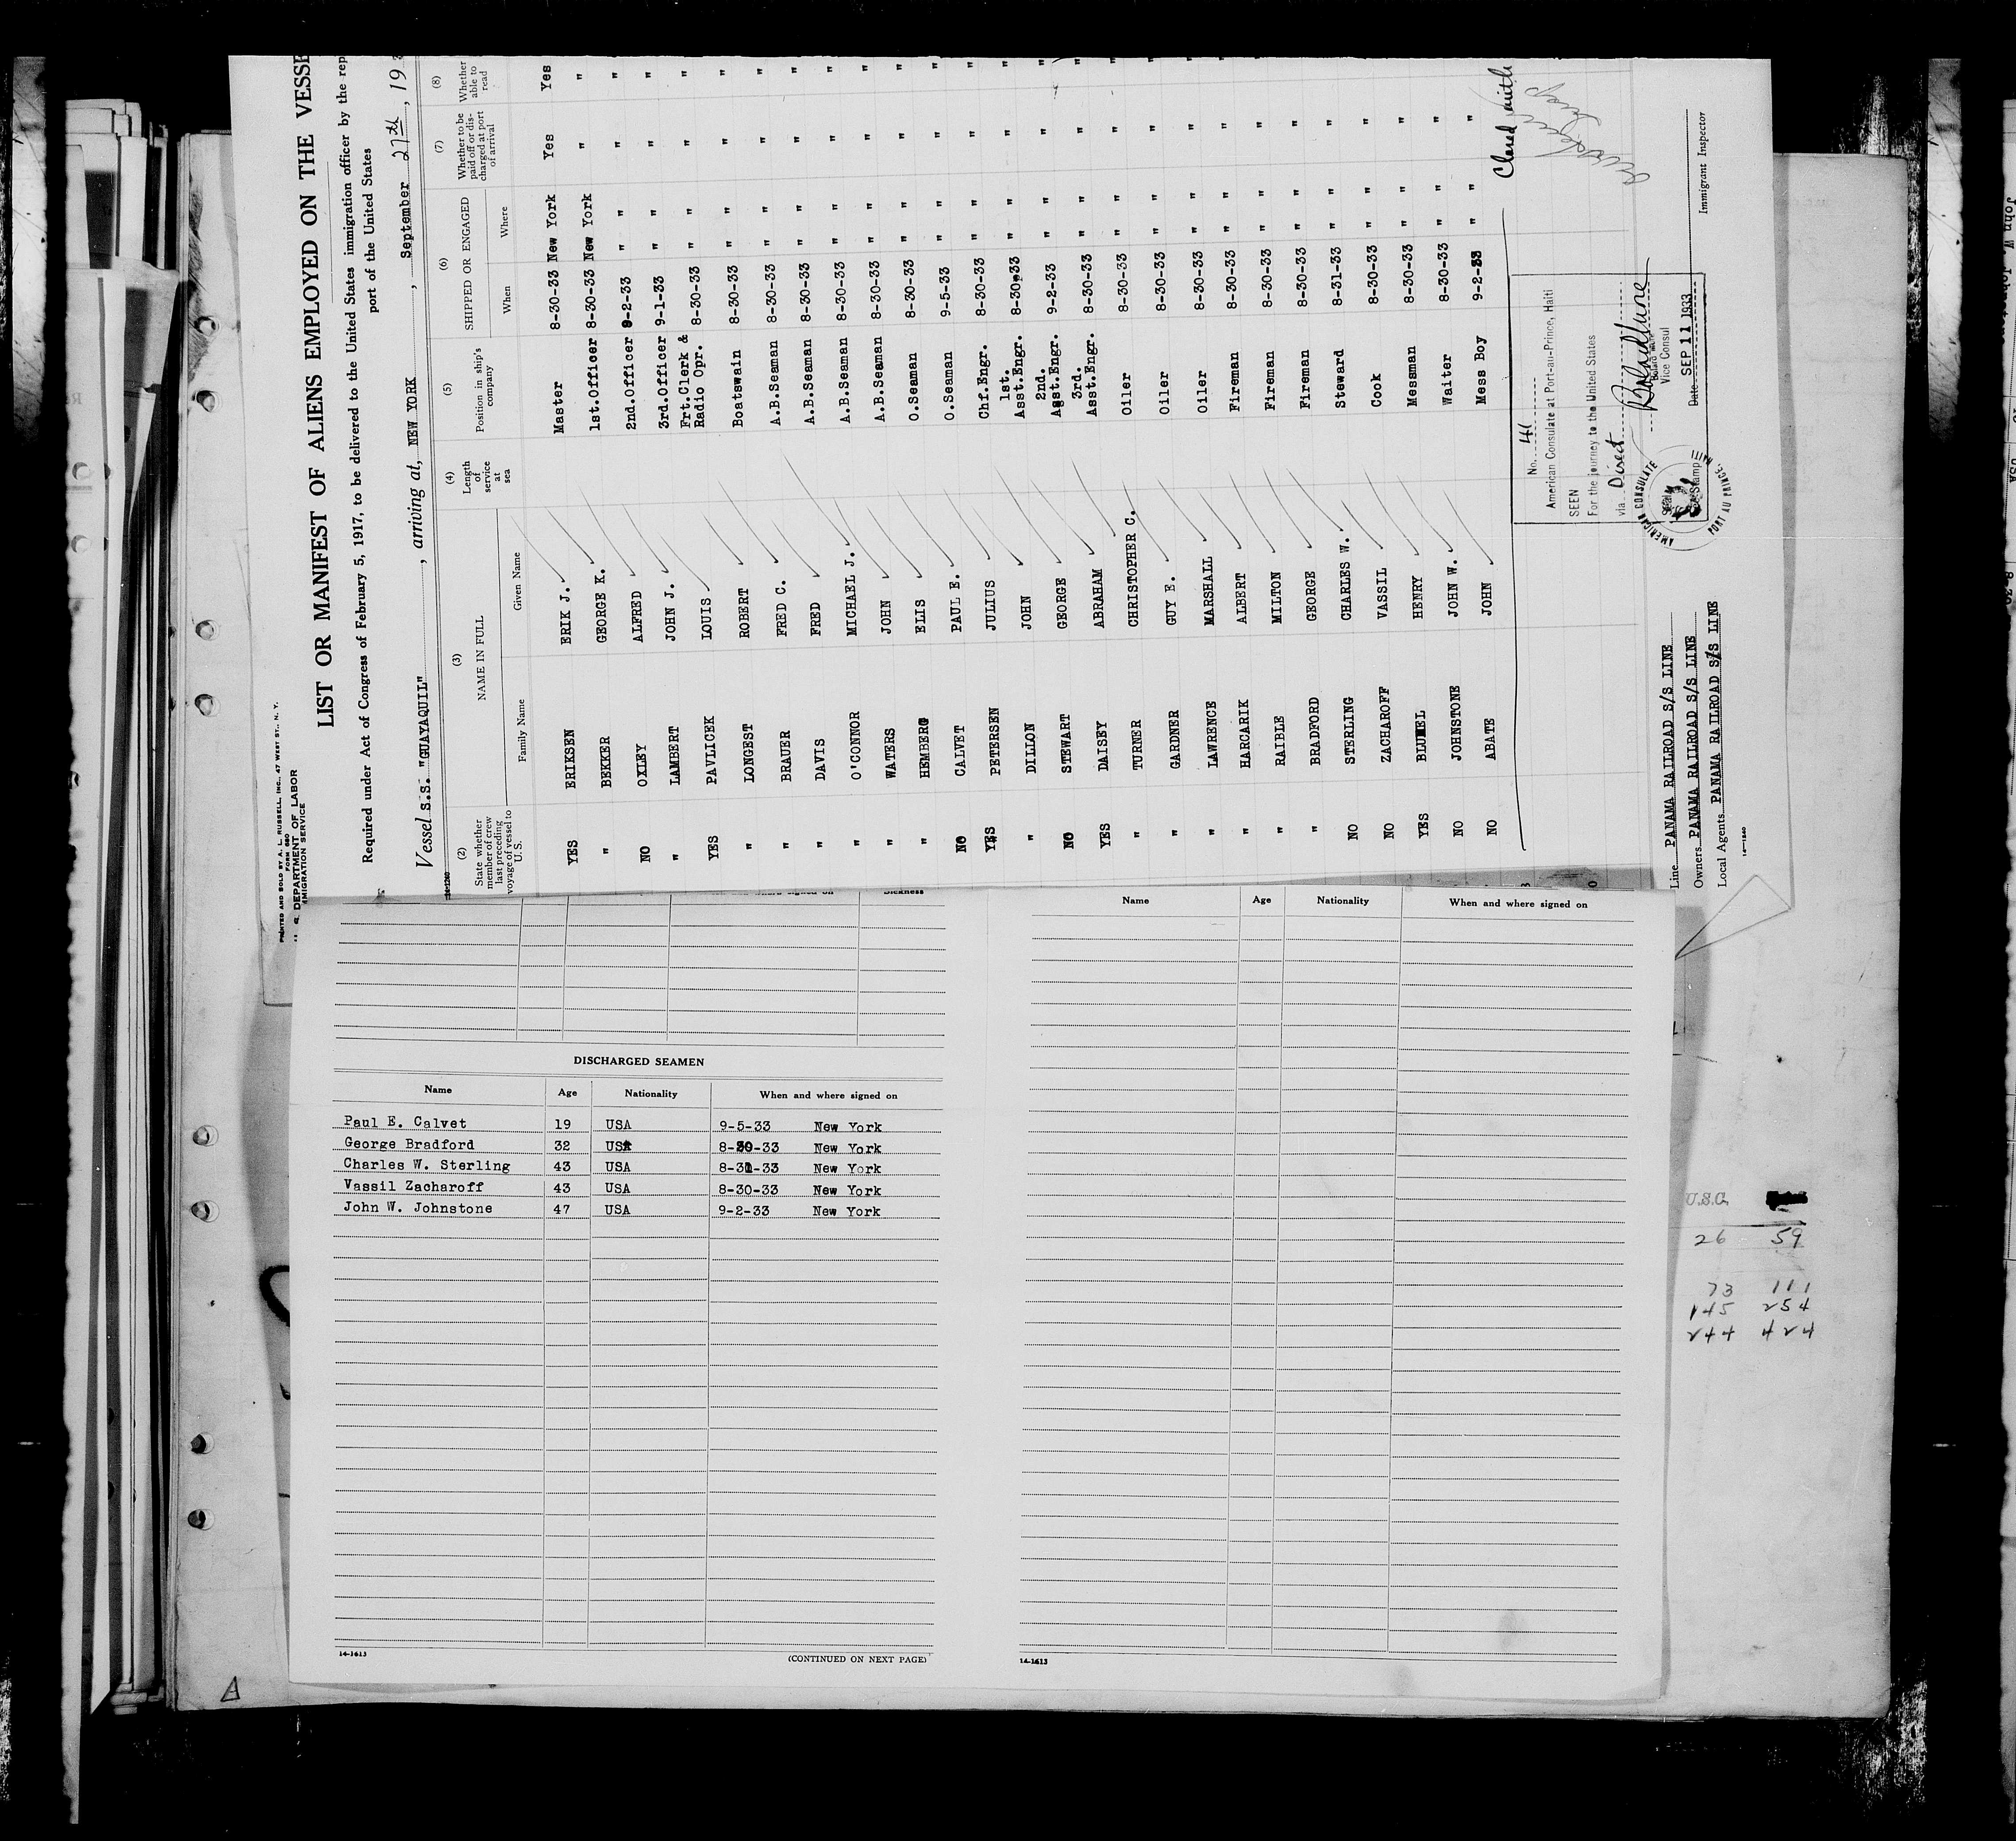 PRINTED AND SOLD BY A. L. RUSSELL, INC., 47 WEST ST., N. Y.
FORM 680
DEPARTMENT OF LABOR
IMMIGRATION SERVICE
LIST OR MANIFEST OF ALIENS EMPLOYED ON THE VESSE
Required under Act of Congress of February 5, 1917, to be delivered to the United States immigration officer by the rep
port of the United States
Vessel S.S. "GUAYAQUIL", arriving at, NEW YORK, September 27th, 193
(2) (3) (4) (5) (6) (7) (8)
State whether member of crew last preceding voyage of vessel to U.S. NAME IN FULL Family Name Given Name Length of service at sea Position in ship's company SHIPPED OR ENGAGED When Where Whether to be paid off or discharged at port of arrival Whether able to read
YES ERIKSEN ERIK J. Master 8-30-33 New York Yes Yes
" BEKKER GEORGE K. 1st.Officer 8-30-33 New York " "
NO OXLEY ALFRED 2nd.Officer 9-2-33 " " "
" LAMBERT JOHN J. 3rd.Officer 9-1-33 " " " "
YES PAVLICEK LOUIS Frt.Clerk & Radio Opr. 8-30-33 " " " "
" LONGEST ROBERT Boatswain 8-30-33 " " " "
" BRAUER FRED C. A.B.Seaman 8-30-33 " " " "
" DAVIS FRED A.B.Seaman 8-30-33 " " " "
" O'CONNOR MICHAEL J. A.B.Seaman 8-30-33 " " " "
" WATERS JOHN A.B.Seaman 8-30-33 " " " "
" HEMBERG ELIS O.Seaman 8-30-33 " " " "
NO CALVET PAUL E. O.Seaman 9-5-33 " " " "
YES PETERSEN JULIUS Chf.Engr. 8-30-33 " " " "
" DILLON JOHN 1st. Asst.Engr. 8-30-33 " " " "
NO STEWART GEORGE 2nd. Asst.Engr. 9-2-33 " " " "
YES DAISEY ABRAHAM 3rd. Asst.Engr. 8-30-33 " " " "
" TURNER CHRISTOPHER C. Oiler 8-30-33 " " " "
" GARDNER GUY E. Oiler 8-30-33 " " " "
" LAWRENCE MARSHALL Oiler 8-30-33 " " " "
" HARCARIK ALBERT Fireman 8-30-33 " " " "
" RAIBLE MILTON Fireman 8-30-33 " " " "
" BRADFORD GEORGE Fireman 8-30-33 " " " "
NO STERLING CHARLES W. Steward 8-31-33 " " " "
NO ZACHAROFF VASSIL Cook 8-30-33 " " " "
YES BLUMEL HENRY Messman 8-30-33 " " " "
NO JOHNSTONE JOHN W. Waiter 8-30-33 " " " "
NO ABATE JOHN Mess Boy 9-2-33 " " "
Closed with
No. 41
American Consulate at Port-au-Prince, Haiti
SEEN
For the journey to the United States
via Direct
Vice Consul
Date SEP 11 1933
AMERICAN CONSULATE
PORT AU PRINCE, HAITI
Immigrant Inspector
Line PANAMA RAILROAD S/S LINE
Owners PANAMA RAILROAD S/S LINE
Local Agents PANAMA RAILROAD S/S LINE
14-1240
Sickness
DISCHARGED SEAMEN
Name Age Nationality When and where signed on
Paul E. Calvet 19 USA 9-5-33 New York
George Bradford 32 USA 8-30-33 New York
Charles W. Sterling 43 USA 8-31-33 New York
Vassil Zacharoff 43 USA 8-30-33 New York
John W. Johnstone 47 USA 9-2-33 New York
14-1613
(CONTINUED ON NEXT PAGE)
Name Age Nationality When and where signed on
14-1613
U.S.C.
26 59
73 111
145 254
244 424